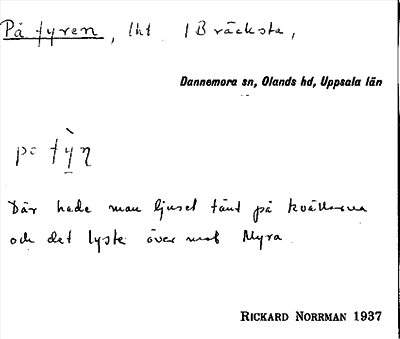 På fyren, lht 1 Bräcksta,
Dannemora sn, Olands hd, Uppsala län
Där hade man ljuset tänt på kvällarna
och det lyste över mot Myra
RICKARD NORRMAN 1937